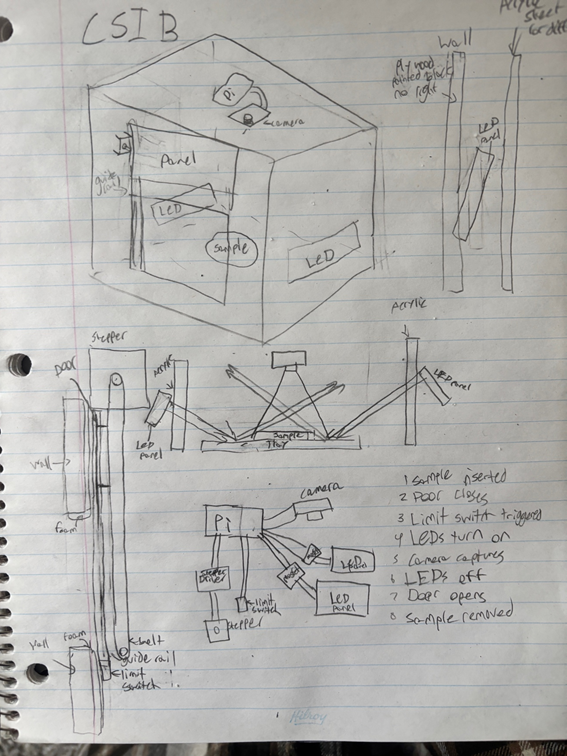 CSIB
Pi
camera
Panel
guide
LED
Sample
LED
Wall
plywood
painted black
no light
LED
Panel
Acrylic
sheet
Stepper
Door
wall
foam
Acrylic
LED
panel
Sample
Tray
Acrylic
LED panel
wall
foam
belt
guide rail
limit
switch
Pi
Camera
Stepper
Driver
limit
switch
stepper
LED
LED
Panel
1 Sample inserted
2 Door closes
3 Limit switch triggered
4 LEDs turn on
5 Camera captures
6 LEDs off
7 Door opens
8 Sample removed
Hilroy